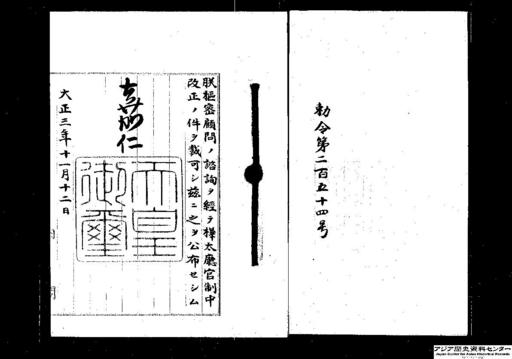 勅令第二百五十四号
朕枢密顧問ノ諮詢ヲ経テ樺太庁官制中
改正ノ件ヲ裁可シ茲ニ之ヲ公布セシム
嘉仁
天皇
御璽
大正三年十一月十二日
アジア歴史資料センター
Japan Center for Asian Historical Records